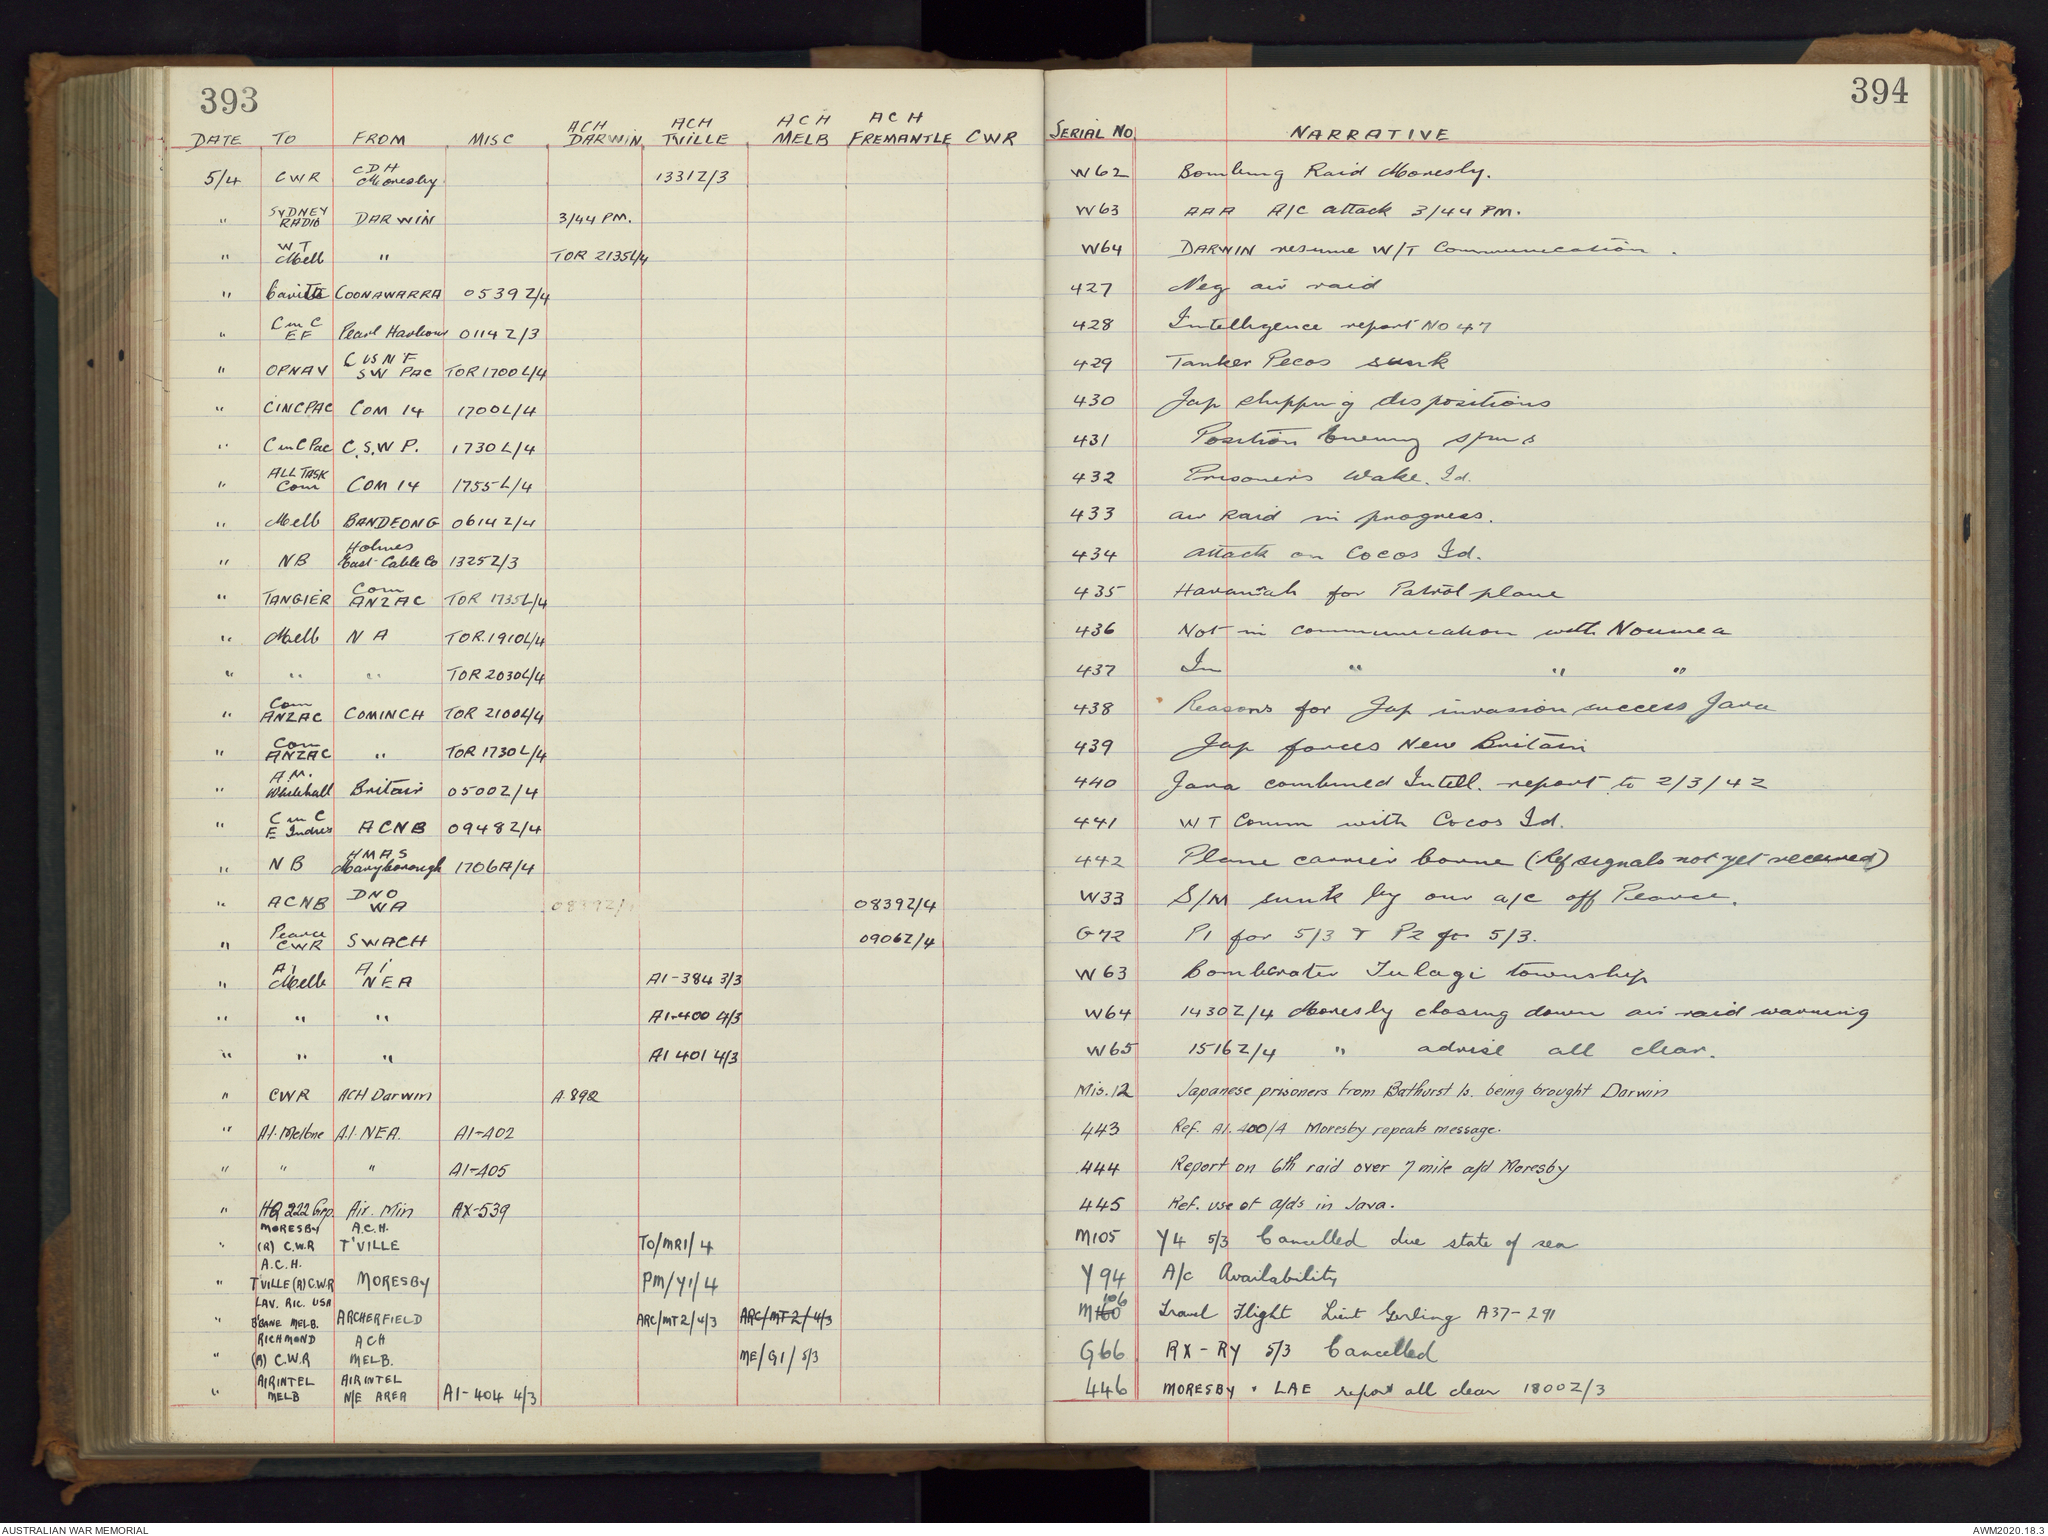 393
394
DATE TO FROM MISC ACH DARWIN ACH TVILLE ACH MELB ACH FREMANTLE CWR SERIAL NO NARRATIVE
5/4 CWR CDH Moresby 1331Z/3 W62 Bombing Raid Moresby.
" SYDNEY RADIO DARWIN 3/44 PM. W63 AAA A/C attack 3/44 PM.
" WT Melb " TOR 2135L/4 W64 DARWIN resume W/T Communication.
" Cavite COONAWARRA 0539Z/4 427 Neg air raid
" C in C EF Pearl Harbour 0114Z/3 428 Intelligence report No 47
" OPNAV CUSNF SW PAC TOR 1700L/4 429 Tanker Pecos sunk
" CINCPAC COM 14 1700L/4 430 Jap shipping dispositions
" C in C Pac C.S.W P. 1730L/4 431 Position Enemy
" ALL TASK Com COM 14 1755L/4 432 Prisoners Wake. Id.
" Melb BANDEONG 0614Z/4 433 air Raid in progress.
" NB Holmes East Cable Co 1325Z/3 434 attack on Cocos Id.
" TANGIER Com ANZAC TOR 1735L/4 435 Havannah for Patrol plane
" Melb NA TOR.1910L/4 436 Not in communication with Noumea
" " " TOR 2030L/4 437 In " " "
" Com ANZAC COMINCH TOR 2100L/4 438 Reasons for Jap invasion success Java
" Com ANZAC " TOR 1730L/4 439 Jap forces New Britain
" A.M. Whitehall Britair 0500Z/4 440 Java combined Intell. report to 2/3/42
" C in C E Indies ACNB 0948Z/4 441 WT Comm with Cocos Id.
" NB HMAS Maryborough 1706A/4 442 Plane carrier borne (Ref signals not yet received)
" ACNB DNO WA 0839Z/4 0839Z/4 W33 S/M sunk by our a/c off Pearce.
" Pearce CWR SWACH 0906Z/4 G72 P1 for 5/3 & P2 for 5/3.
" A1 Melb A1 NEA A1-384 3/3 W63 Bombcrater Tulagi township
" " " A1-400 4/3 W64 1430Z/4 Moresby closing down air raid warning
" " " A1 401 4/3 W65 1516Z/4 " advise all clear.
" CWR ACH Darwin A.892 Mis.12 Japanese prisoners from Bathurst Is. being brought Darwin
" A.I. Melbne A.I. NEA. A1-402 443 Ref. A1.400/4 Moresby repeats message.
" " " A1-405 444 Report on 6th raid over 7 mile a/d Moresby
" HQ 222 Grp. Air. Min AX-539 445 Ref. use of a/ds in Java.
" MORESBY (R) C.W.R A.C.H. T'VILLE TO/MR1/4 M105 Y4 5/3 Cancelled due state of sea
" A.C.H. T'VILLE (R) C.W.R MORESBY PM/Y1/4 Y94 A/c Availability
" LAV. RIC. USA B'BANE MELB. ARCHERFIELD ARC/MT2/4/3 ARC/MT2/4/3 M106 Travel Flight Lieut Gerling A37-291
" RICHMOND (R) C.W.R ACH MELB. ME/G1/5/3 G66 RX-RY 5/3 Cancelled
" AIRINTEL MELB AIRINTEL N/E AREA A1-404 4/3 446 MORESBY . LAE report all clear 1800Z/3
AUSTRALIAN WAR MEMORIAL
AWM2020.18.3